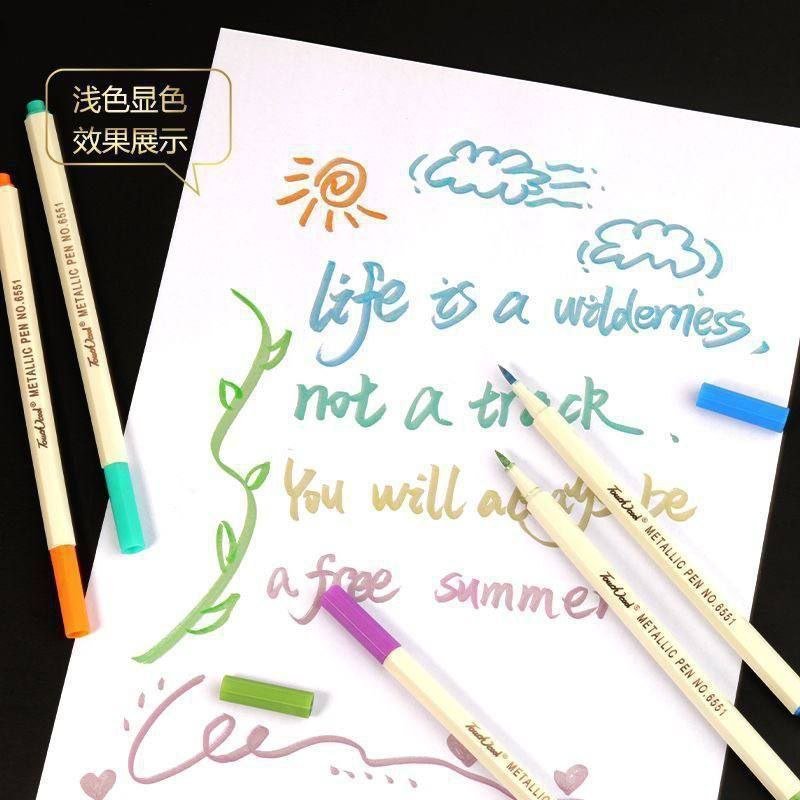 浅色显色
效果展示
life is a wilderness,
not a track.
You will always be
a free summer
TouchWood® METALLIC PEN NO.6551
TouchWood® METALLIC PEN NO.6551
TouchWood® METALLIC PEN NO.6551
TouchWood® METALLIC PEN NO.6551
TouchWood® METALLIC